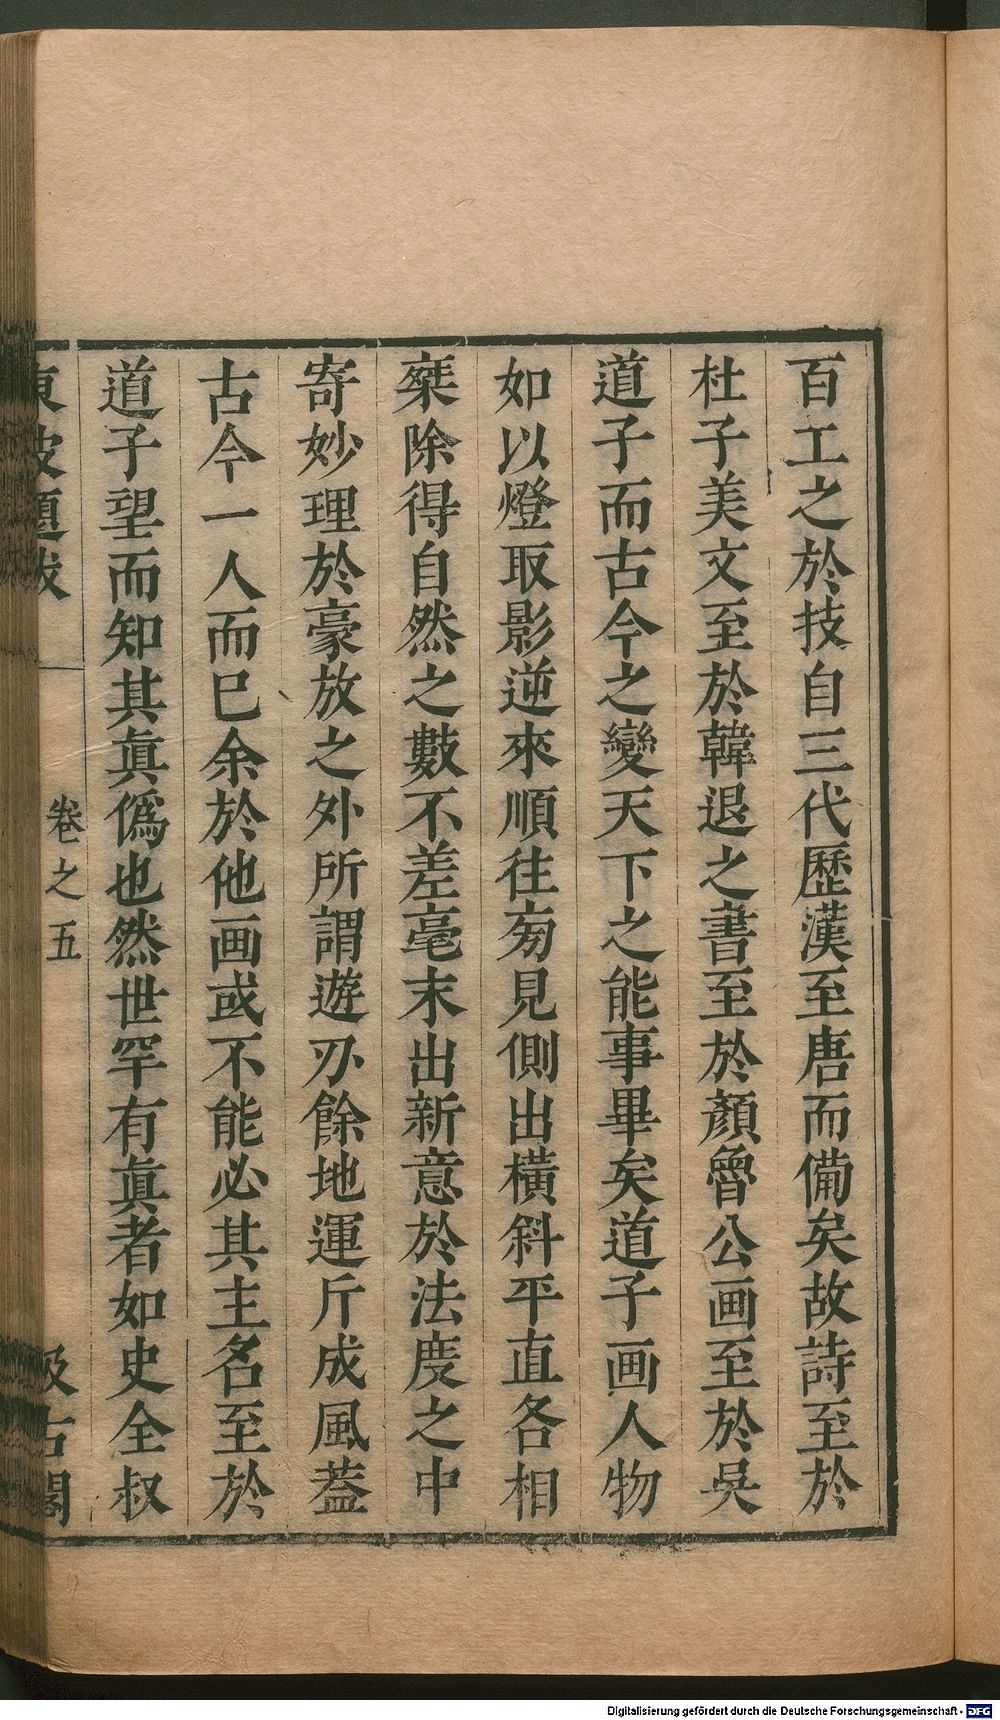 百工之於技自三代歷漢至唐而備矣故詩至於
杜子美文至於韓退之書至於顏魯公画至於吳
道子而古今之變天下之能事畢矣道子画人物
如以燈取影逆來順往旁見側出橫斜平直各相
椉除得自然之數不差毫末出新意於法度之中
寄妙理於豪放之外所謂遊刃餘地運斤成風蓋
古今一人而已余於他画或不能必其主名至於
道子望而知其真偽也然世罕有真者如史全叔
東坡題跋
卷之五
汲古閣
Digitalisierung gefördert durch die Deutsche Forschungsgemeinschaft - DFG